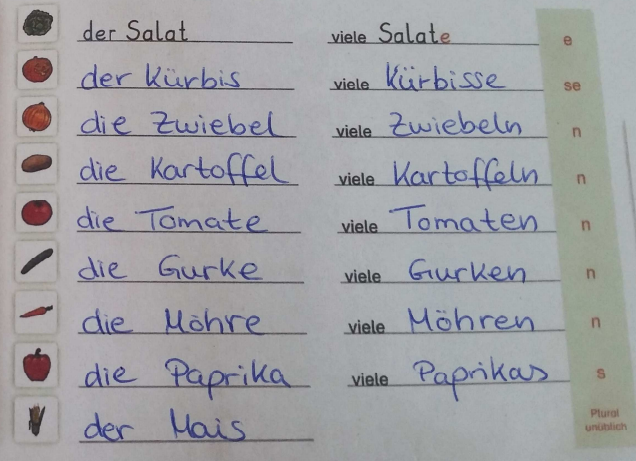 der Salat viele Salate e
der Kürbis viele Kürbisse se
die Zwiebel viele Zwiebeln n
die Kartoffel viele Kartoffeln n
die Tomate viele Tomaten n
die Gurke viele Gurken n
die Möhre viele Möhren n
die Paprika viele Paprikas s
der Mais Plural
unüblich